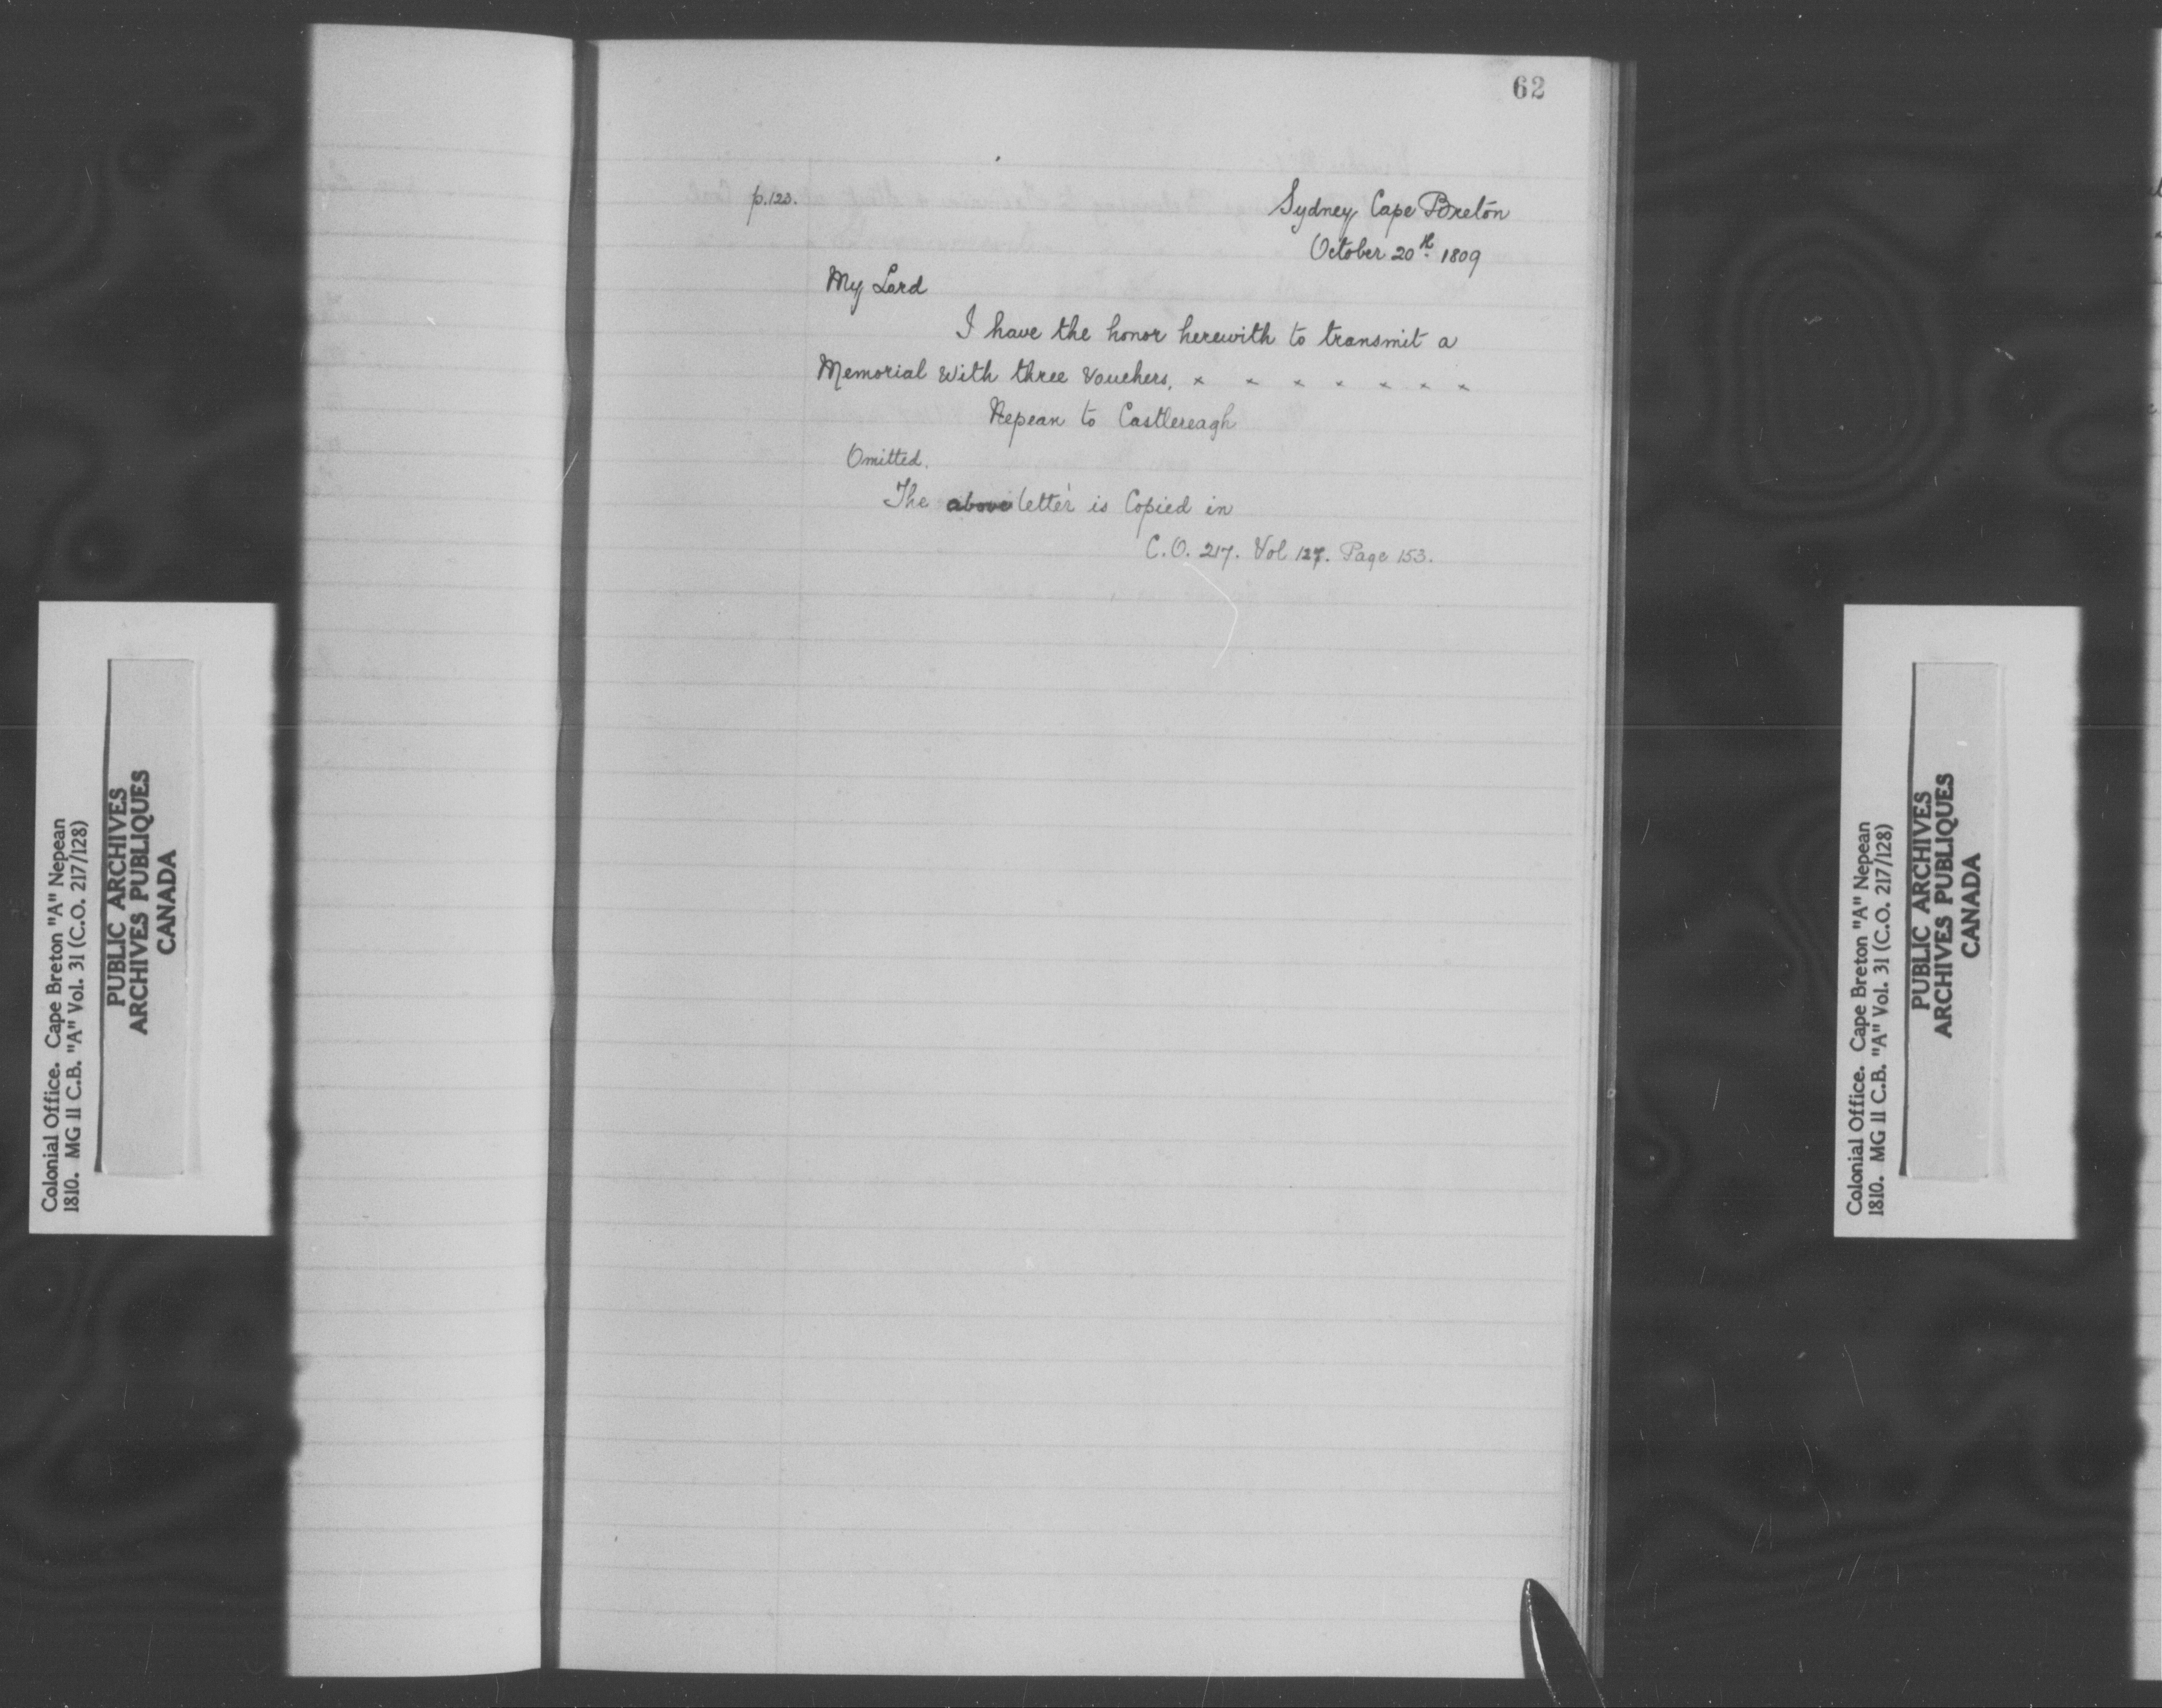 62
p.123.
Sydney, Cape Breton
October 20th. 1809
My Lord
I have the honor herewith to transmit a
Memorial with three Vouchers, x x x x x x x
Nepean to Castlereagh
Omitted.
The above letter is Copied in
C.O. 217. Vol 127. Page 153.
Colonial Office. Cape Breton "A" Nepean
1810. MG 11 C.B. "A" Vol. 31 (C.O. 217/128)
PUBLIC ARCHIVES
ARCHIVES PUBLIQUES
CANADA
Colonial Office. Cape Breton "A" Nepean
1810. MG 11 C.B. "A" Vol. 31 (C.O. 217/128)
PUBLIC ARCHIVES
ARCHIVES PUBLIQUES
CANADA